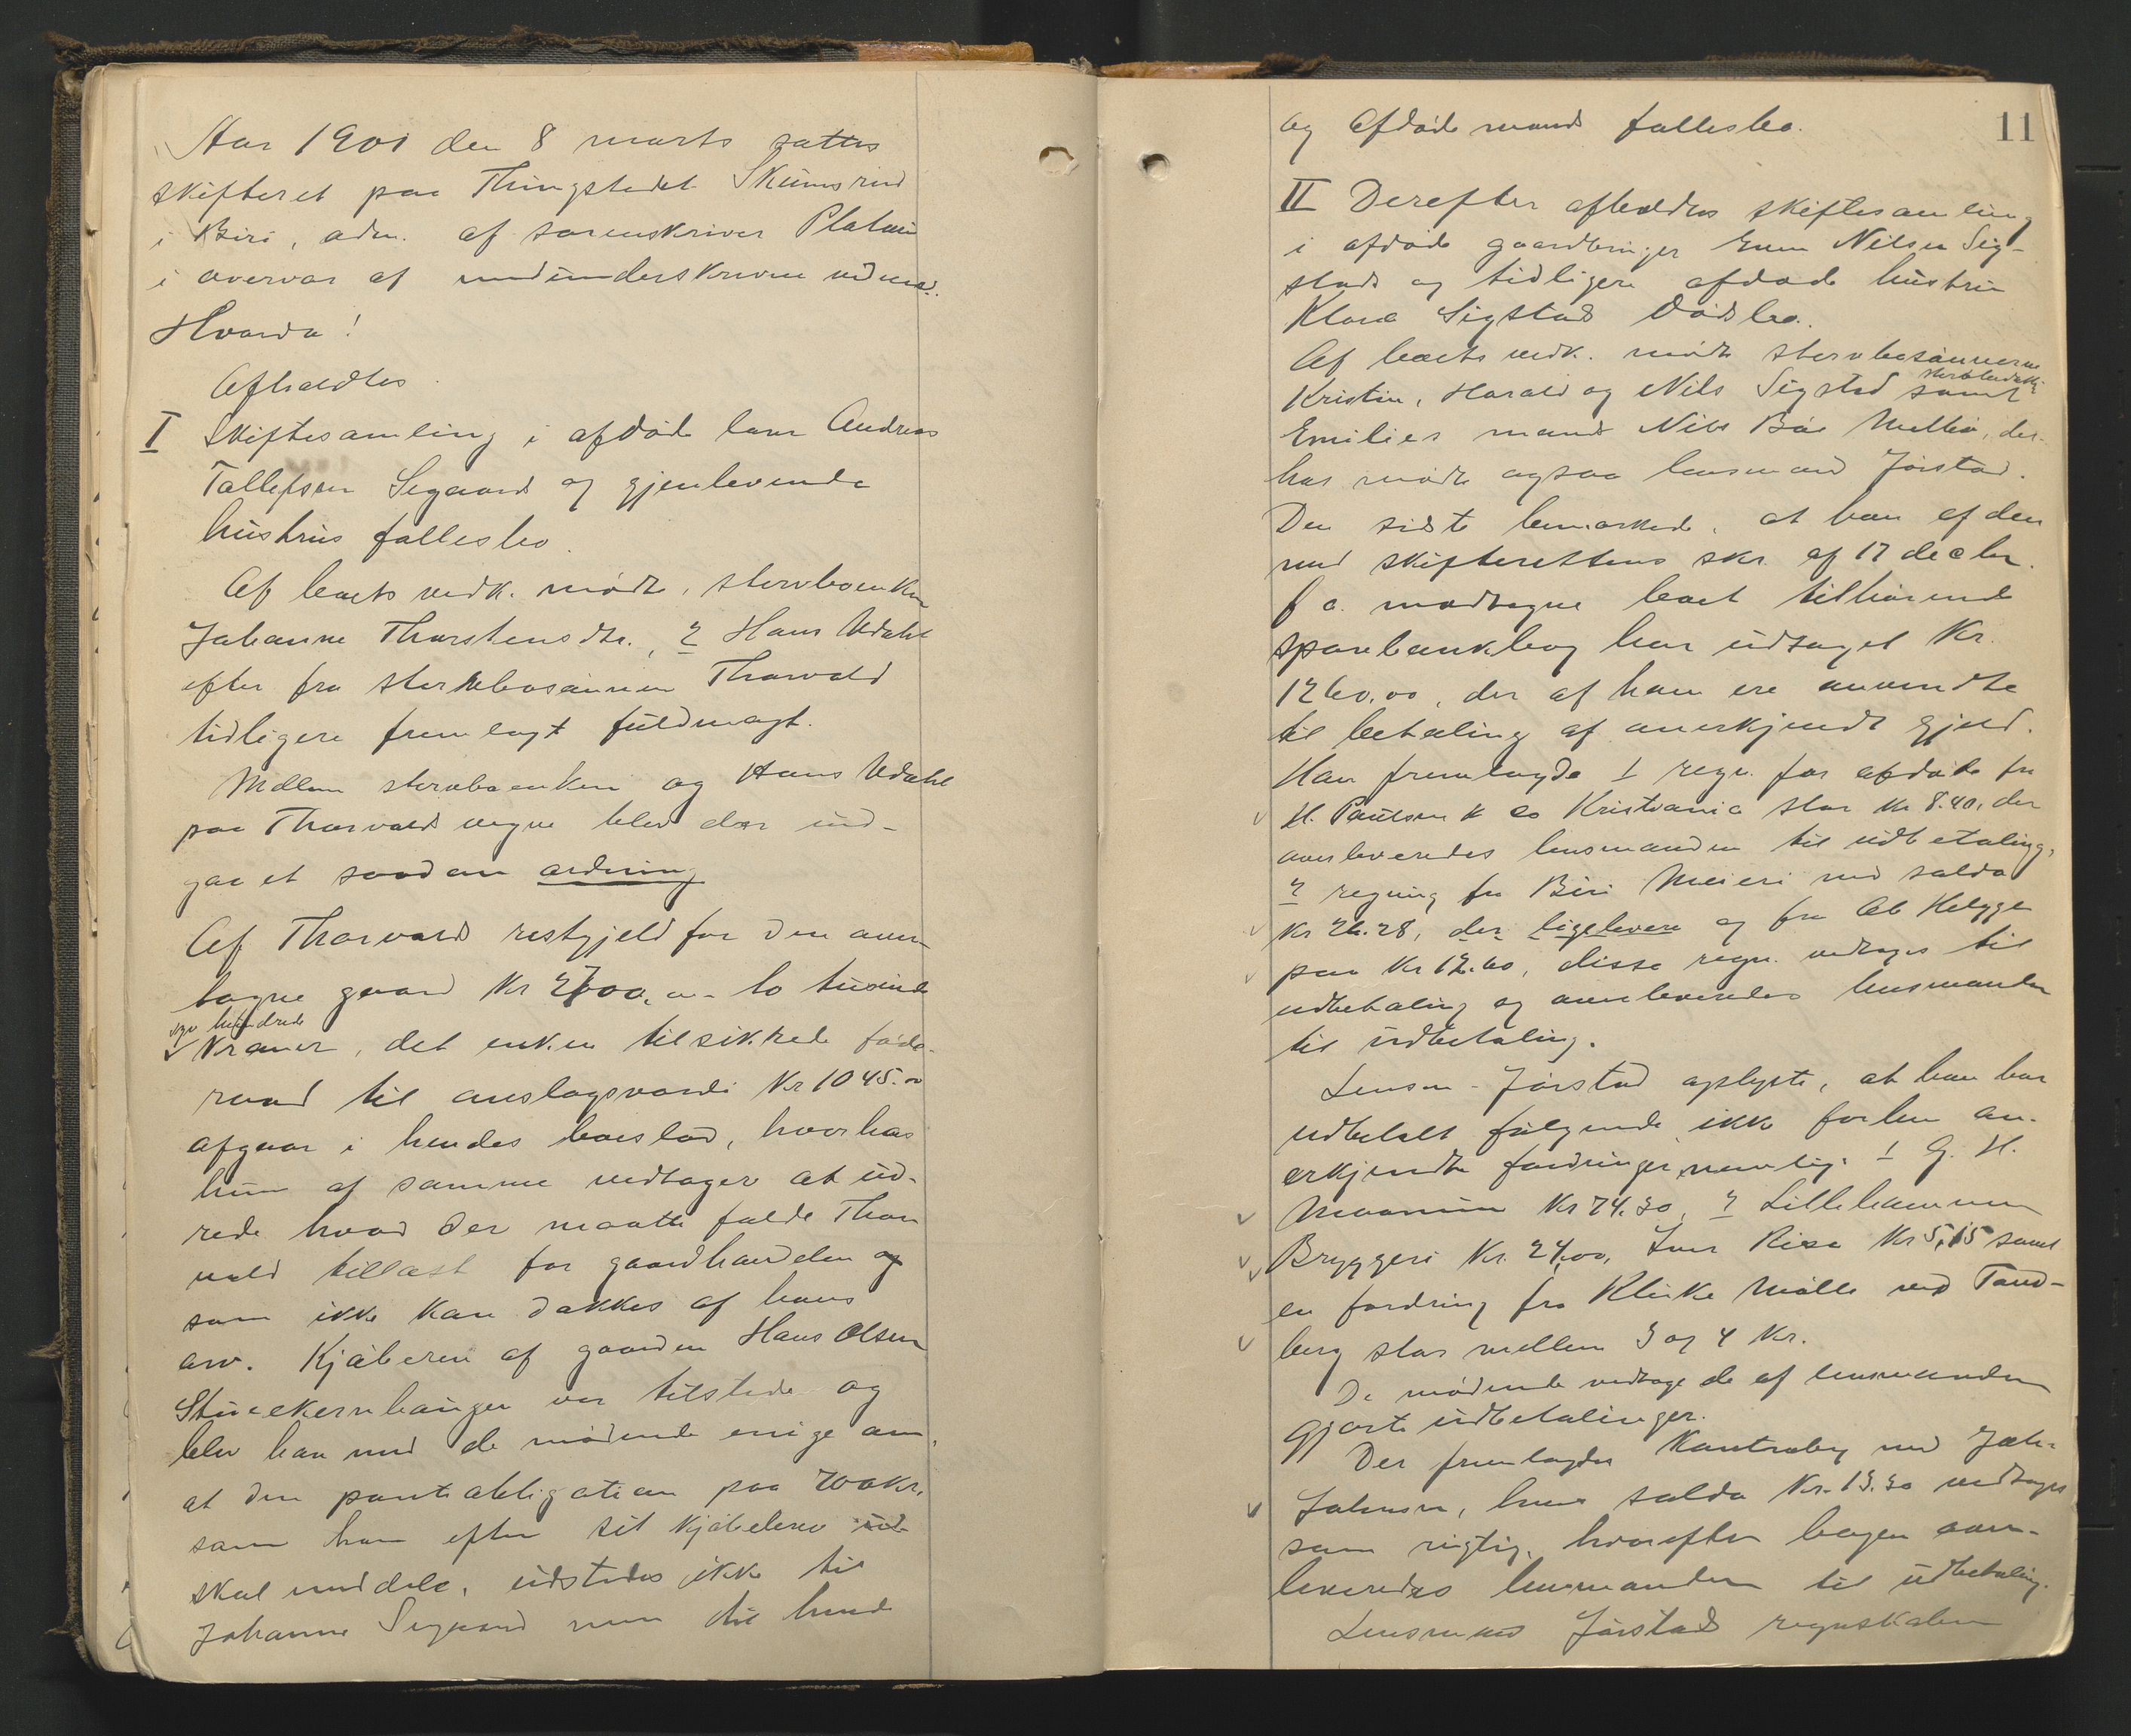 Aar 1901 den 8 marts sattes
skifteret paa Thingstedet Skumsrud
i Biri, adm. af sorenskriver Platou
i overvær af medunderskrevne vidner.
Hvorda!
Afholdtes
I Skiftesamling i afdøde Andreas
Tollefsen Segaard og gjenlevende
hustrus fællesbo.
Af boets vedk. mødte, stervboenken
Johanne Thorstensdtr., 2 Hans Udahl
efter fra stervbosønnen Thorvald
tidligere fremlagt fuldmagt.
Mellem stervboenken og Hans Udahl
paa Thorvalds vegne blev der ind-
gaaet saadan ordning
Af Thorvalds restgjeld for den over-
tagne gaard Kr 2700,00 to tusinde
syv hundrede
Kroner, det enken tilsikrede føde-
raad til anslagsværdi Kr 1045.00
afgaar i hendes boeslod, hvorhos
hun af samme vedtager at ud-
rede hvad der maatte falde Thor
vald tillast for gaardhandelen og
som ikke kan dækkes af hans
arv. Kjøberen af gaarden Hans Olsen
var tilstede og
blev han med de mødende enige om,
at den pantobligation paa 700 kr.
som han efter sit kjøbebrev ud
skal meddele, udstedes ikke til
Johanne Segaard men til hende
11
og afdøde mands fællesbo.
II Derefter afholdtes skiftesamling
i afdøde gaardbruger Even Nilsen Sig-
stad og tidligere afdøde hustru
Klara Sigstads Dødsbo.
Af boets vedk. mødte stervbosønnerne
Kristian, Harald og Nils Sigstad samt
Emilies mand Nils Bøe, der-
hos mødte ogsaa lensmand Jørstad.
Den sidste bemærkede, at han af den
med skifterettens skr. af 17 decbr.
f a. modtagne boet tilhørende
sparebankbog har udtaget Kr.
1260.00, der af ham ere anvendte
til betaling af anerkjendt gjeld.
Han fremlagde 1 regn. for afdøde fra
H. Paulsen & Co Kristiania stor Kr 8.40, der
overleveredes lensmanden til udbetaling,
2 regning fra Biri Meieri med saldo
Kr 26.28, der ligeledes og fra Ab Helgge
paa Kr 12.60, disse regn. vedtages til
udbetaling og overleveredes lensmanden
til udbetaling.
Lensm. Jørstad oplyste, at han har
udbetalt følgende ikke forhen an-
erkjendte fordringer nemlig: 1 G. H.
Kr 74.30, 2 Lillehammer
Bryggeri Kr. 24,00, Iver Rise Kr 5,15 samt
en fordring fra Klinke Mølle ved Tand-
berg stor mellem 3 og 4 Kr.
De mødende vedtage de af lensmanden
gjorte udbetalinger.
Der fremlagdes Kontrabog med Joh.
Johnsen, hvis saldo Kr. 13.30 vedtoges
som rigtig, hvorefter bogen over-
leveredes lensmanden til udbetaling.
Lensmand Jørstads regnskaber